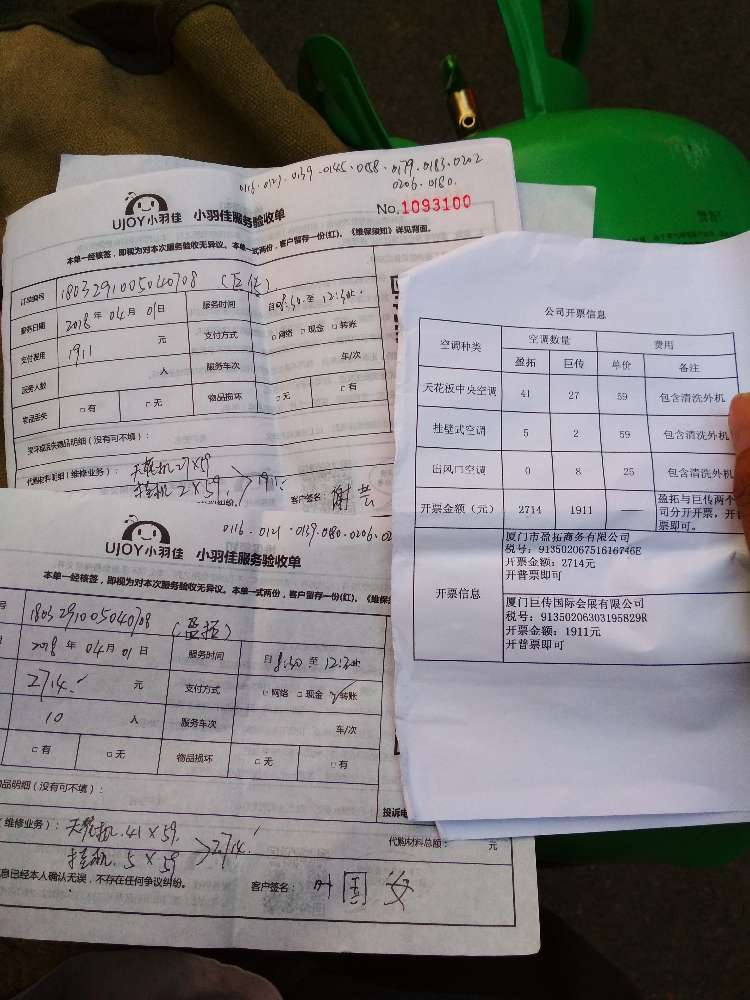 0116.0121.0139.0145.0158.0179.0183.0202
0206.0180.
UJOY小羽佳 小羽佳服务验收单
No.1093100
本单一经核签，即视为对本次服务验收无异议。本单一式两份，客户留存一份(红)。《维保须知》详见背面。
订单编号 1803291005040708 (巨传)
服务日期 2018年04月01日 服务时间 自08:30至12:30止.
支付费用 1911 元 支付方式 □网络 □现金 □转账
服务人数 人 服务车次 车/次
物品丢失 □有 □无 物品损坏 □无 □有
损坏或丢失物品明细（没有可不填）：
代购材料明细(维修业务)： 天花机 27×59
挂机 2×59. >1911.
客户签名：谢芸
0116.0121.0139.0180.0206.02
UJOY小羽佳 小羽佳服务验收单
本单一经核签，即视为对本次服务验收无异议。本单一式两份，客户留存一份(红)。《维保
号 1803291005040708 (盈拓)
2018年04月01日 服务时间 自8:30至12:30止
2714. 元 支付方式 □网络 □现金 ☑转账
10 人 服务车次 车/次
□有 □无 物品损坏 □无 □有
品明细（没有可不填）：
投诉电
(维修业务)： 天花机.41×59.
挂机.5×59 >2714.
代购材料总额： 元
息已经本人确认无误，不存在任何争议纠纷。
客户签名：叶国安
公司开票信息
空调种类 空调数量 费用
盈拓 巨传 单价 备注
天花板中央空调 41 27 59 包含清洗外机
挂壁式空调 5 2 59 包含清洗外机
出风口空调 0 8 25 包含清洗外机
开票金额（元） 2714 1911 —— 盈拓与巨传两个
司分开开票，开
票即可。
开票信息
厦门市盈拓商务有限公司
税号：91350206751616746E
开票金额：2714元
开普票即可
厦门巨传国际会展有限公司
税号：91350206303195829R
开票金额：1911元
开普票即可